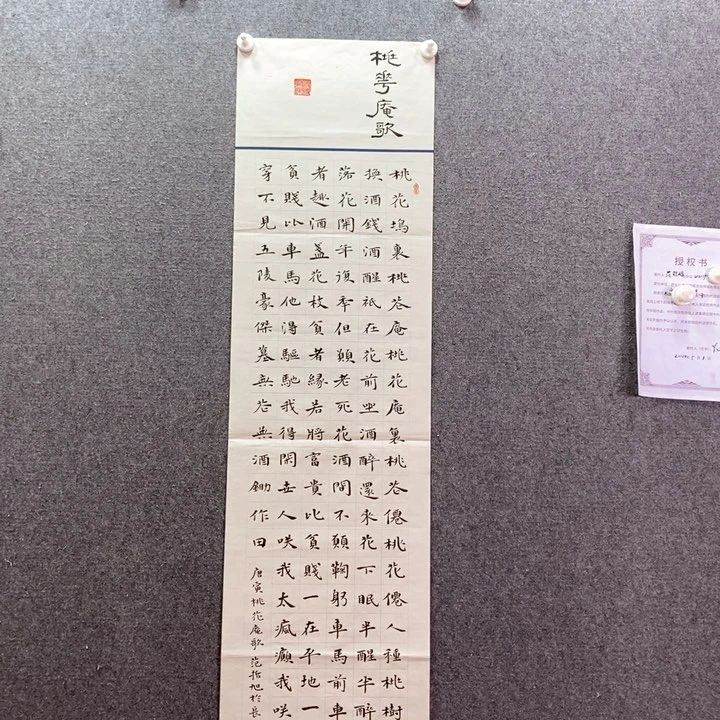 桃華庵歌
桃花塢裏桃花庵桃花庵裏桃花僊桃花僊人種桃樹
換酒錢酒醒祇在花前坐酒醉還来花下眠半醒半醉
落花開年復秊但願老死花酒間不願鞠躬車馬前車
者趣酒盞花枝貧者緣若將富貴比貧賤一在平地一
貧賤比車馬他得驅馳我得閑世人咲我太瘋癲我咲
穿不見五陵豪傑墓無花無酒鋤作田
唐寅桃花庵歌 范哲旭於長
授权书